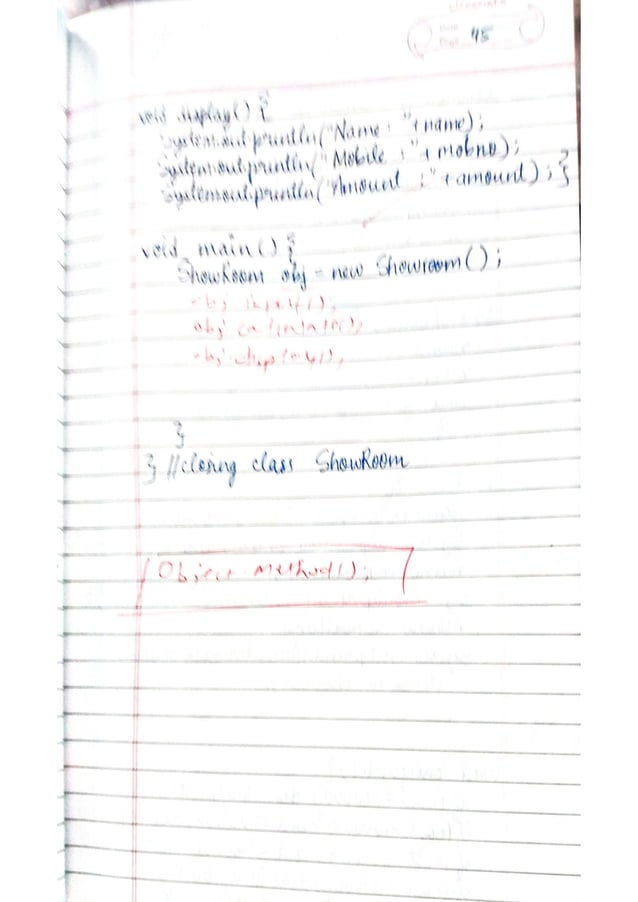 Page 45
void display() {
System.out.println("Name : "+name);
System.out.println("Mobile : "+ mobno);
System.out.println("Amount : "+amount); } }
void main() {
ShowRoom obj = new Showroom();
obj.input();
obj.calculate();
obj.display();
}
} //closing class ShowRoom
Object.Method();